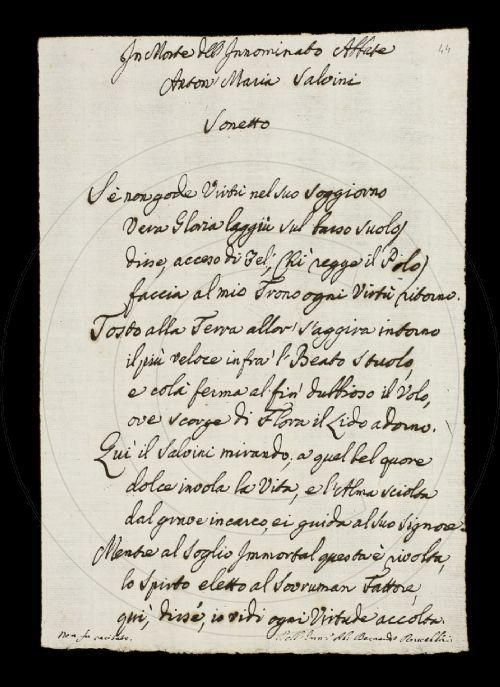 44
In Morte dell'Innominato Abbate
Anton Maria Salvini
Sonetto
Sè non gode Virtù nel suo soggiorno
Vera Gloria laggiù sul basso suolo,
disse, acceso di Zel', Chi regge il Polo,
faccia al mio Trono ogni Virtù ritorno.
Tosto alla Terra allor' s'aggira intorno
il più veloce infra l' Beato stuolo,
e colà ferma al fin' dubbioso il Volo,
ove scorge di Flora il Lido adorno.
Quì il Salvini mirando, a quel bel quore
dolce invola la Vita, e l'Alma sciolta
dal grave incarco, ei guida al suo Signore.
Mentre al Soglio Immortal questa è rivolta,
lo spirto eletto al Sovruman Fattore,
quì, disse, io vidi ogni Virtude accolta.
Non fu recitato.
Bernardo